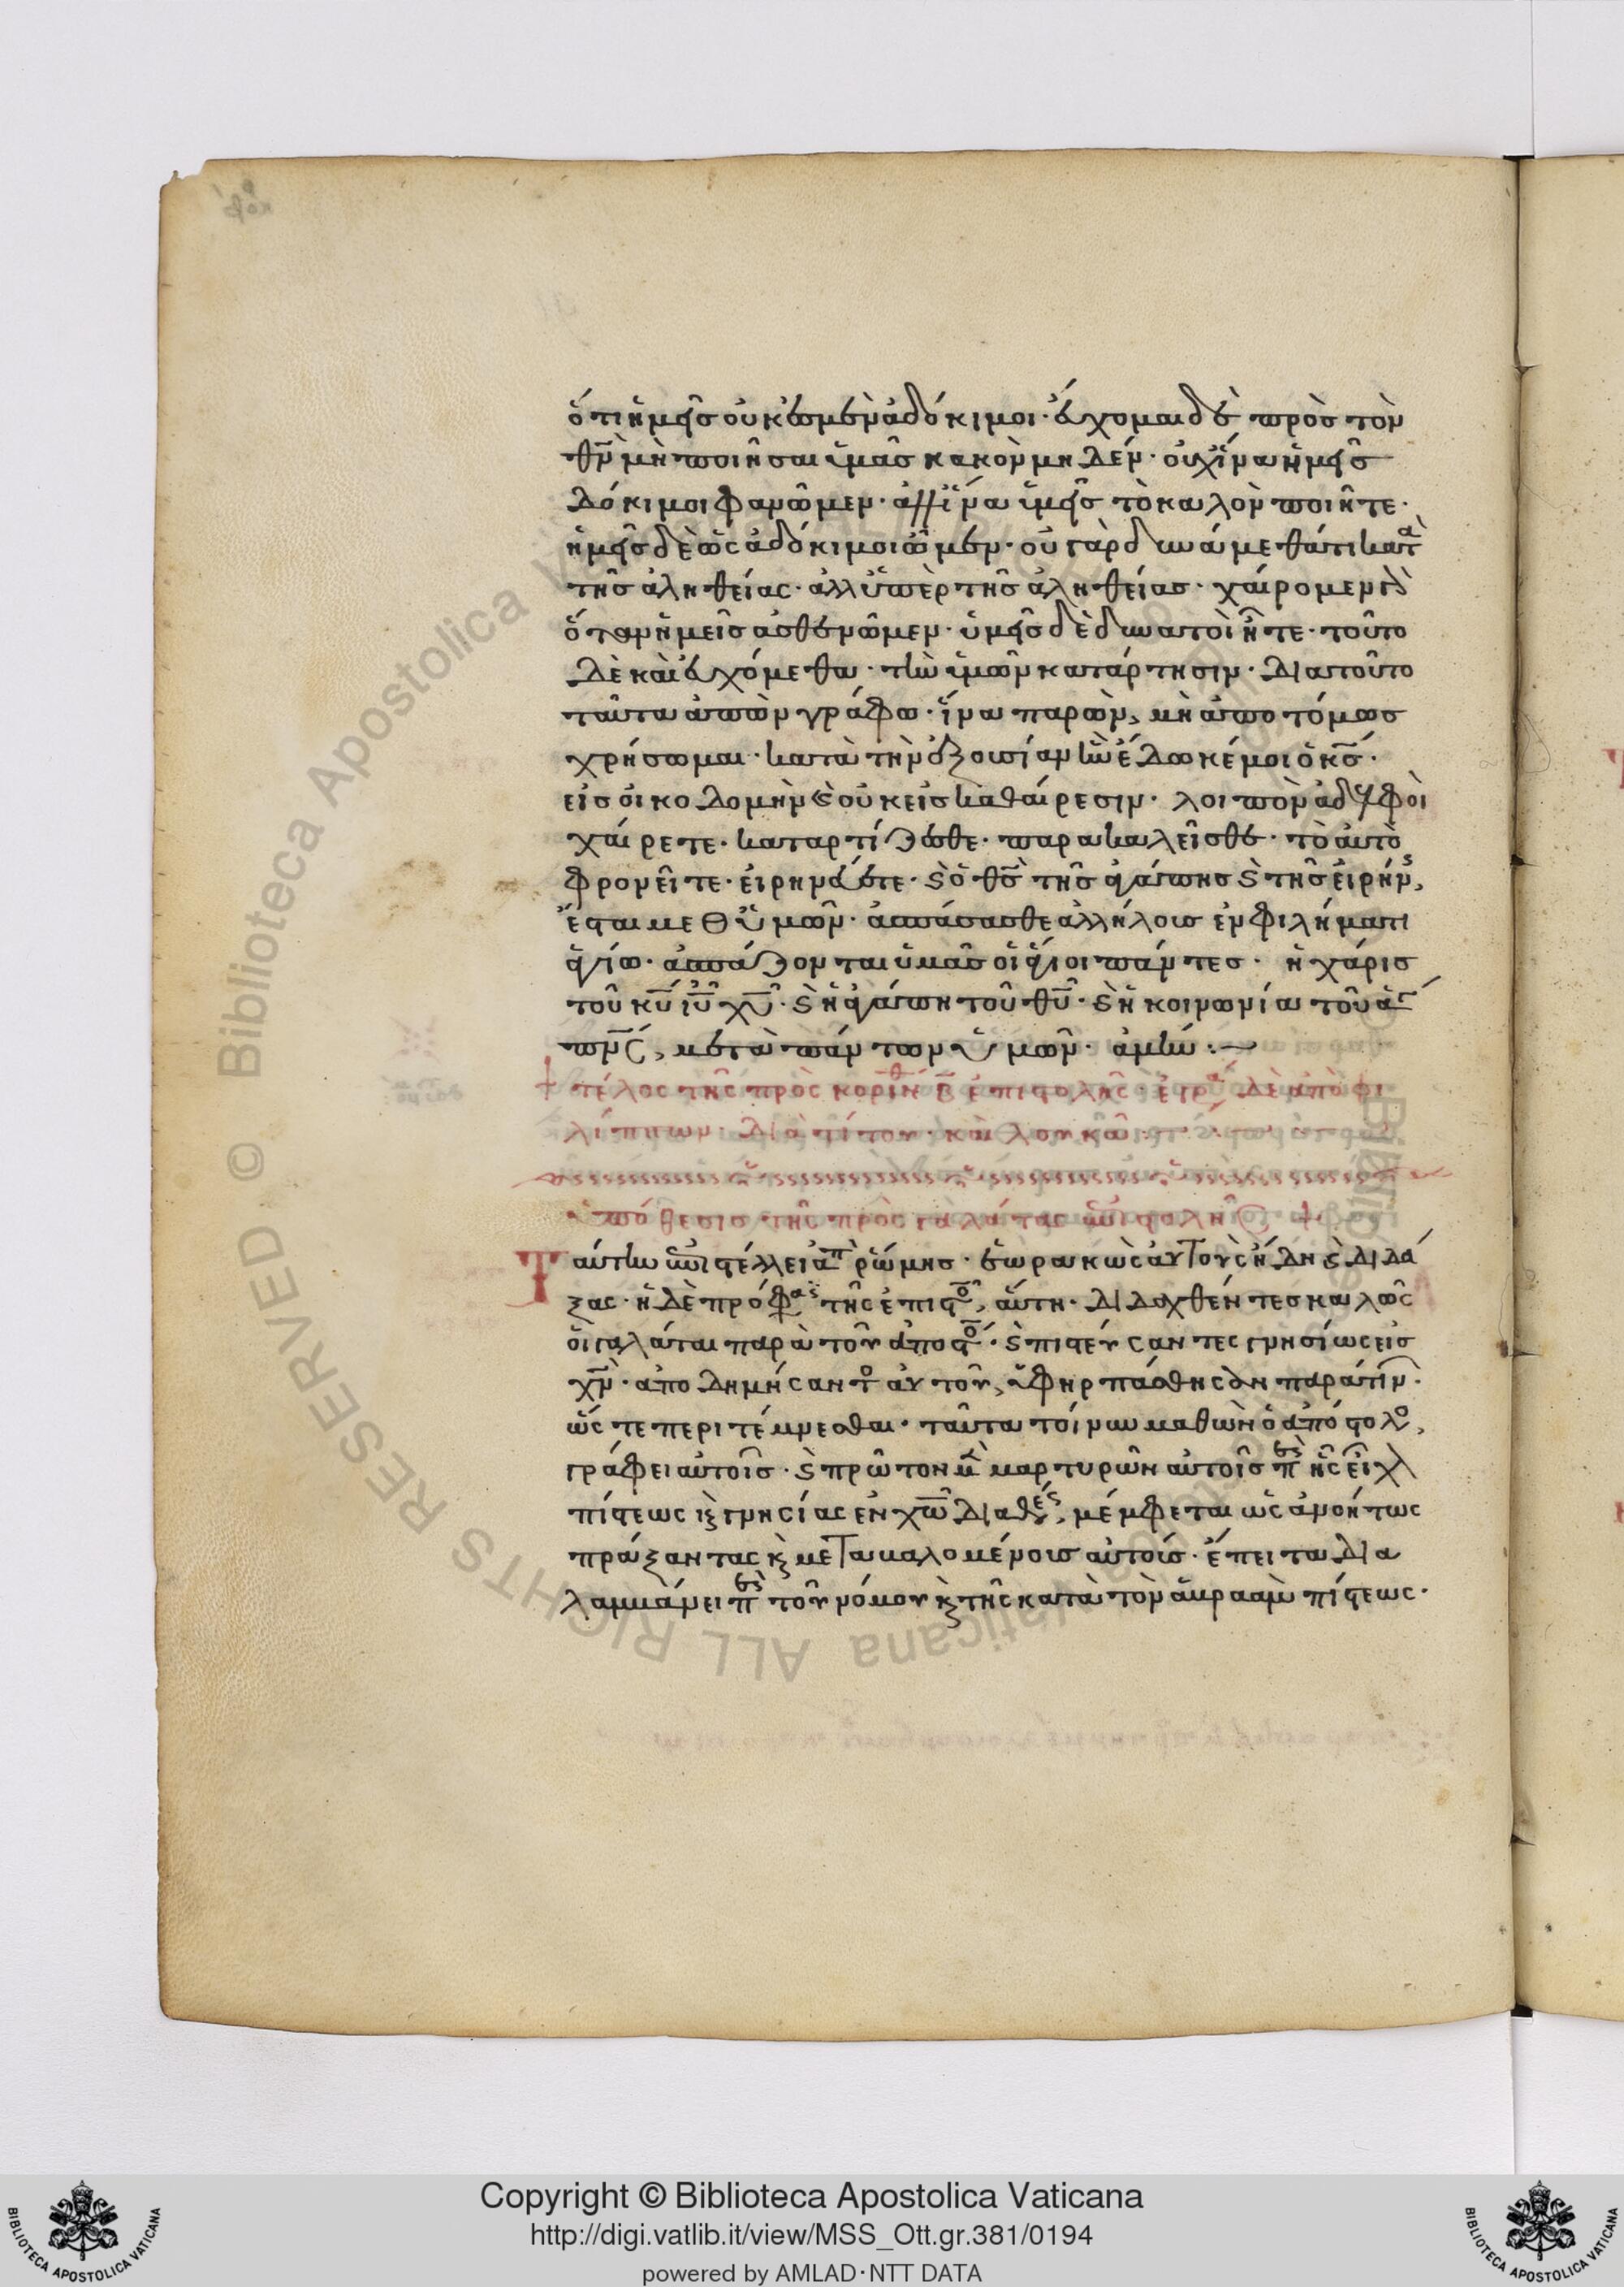 ὅτι ἡμεῖς οὐκ ἐσμὲν ἀδόκιμοι· εὔχομαι δὲ πρὸς τὸν
θν̅ μὴ ποιῆσαι ὑμᾶς κακὸν μηδέν· οὐχ ἵνα ἡμεῖς
δόκιμοι φανῶμεν· ἀλλ ἵνα ὑμεῖς τὸ καλὸν ποιῆτε·
ἡμεῖς δὲ ὡς ἀδόκιμοι ὦμεν· οὐ γὰρ δυνάμεθά τι κατὰ
τῆς ἀληθείας· ἀλλ ὑπὲρ τῆς ἀληθείας· χαίρομεν δὲ
ὅταν ἡμεῖς ἀσθενῶμεν· ὑμεῖς δὲ δυνατοὶ ἦτε· τοῦτο
δὲ καὶ εὐχόμεθα· τὴν ὑμῶν κατάρτησιν· διατοῦτο
ταῦτα ἀπὼν γράφω· ἵνα παρὼν, μὴ ἀποτόμως
χρήσωμαι· κατὰ τὴν ἐξουσίαν ἣν ἔδωκέ μοι ὁ κς̅·
εἰς οἰκοδομὴν καὶ οὐκ εἰς καθαίρεσιν· λοιπὸν ἀδελφοὶ
χαίρετε· καταρτίζεσθε· παρακαλεῖσθε· τὸ αὐτὸ
φρονεῖτε· εἰρηνεύετε· καὶ ὁ θς̅ τῆς ἀγάπης καὶ τῆς εἰρήνης,
ἔσται μεθ ὑμῶν· ἀσπάσασθε ἀλλήλους ἐν φιλήματι
ἁγίω· ἀσπάζονται ὑμᾶς οἱ ἅγιοι πάντες· ἡ χάρις
τοῦ κυ̅ ιυ̅ χυ̅· καὶ ἡ ἀγάπη τοῦ θυ̅· καὶ ἡ κοινωνία τοῦ ἁγ
πνς̅, μετὰ πάντων ὑμῶν· ἀμήν:
+ τέλος τῆς πρὸς κορινθ β̅ ἐπιστολῆς· ἐγρα δὲ ἀπὸ φι
λίππων· διὰ τίτου· καὶ λουκᾶ
ὑπόθεσις τῆς πρὸς γαλάτας ἐπιστολῆς +
Ταύτην ἐπιστέλλει ἀπὸ ῥώμης· ἑωρακὼς αὐτοὺς ἤδη καὶ διδά
ξας· ἡ δὲ πρόφασις τῆς ἐπιστο, αὕτη· διδαχθέντες καλῶς
οἱ γαλάται παρὰ τοῦ ἀποστο· καὶ πιστεύσαντες γνησίως εἰς
χν̅· ἀποδημήσαντο αὐτοῦ, ὑφηρπάσθησαν παρά τιν·
ὥστε περιτέμνεσθαι· ταῦτα τοίνυν μαθὼν ὁ ἀπόστολο,
γράφει αὐτοῖς· καὶ πρῶτον μὲ μαρτυρῶν αὐτοῖς περὶ ἧς εἶχ
πίστεως καὶ γνησίας ἐν χω̅ διαθέσ, μέμφεται ὡς ἀνοήτως
πράξαντας καὶ μετακαλομένοις αὐτοῖς· ἔπειτα δια
λαμβάνει περὶ τοῦ νόμου καὶ τῆς κατὰ τὸν ἀβραὰμ πίστεως·
Copyright © Biblioteca Apostolica Vaticana
http://digi.vatlib.it/view/MSS_Ott.gr.381/0194
powered by AMLAD·NTT DATA
BIBLIOTECA APOSTOLICA VATICANA
BIBLIOTECA APOSTOLICA VATICANA